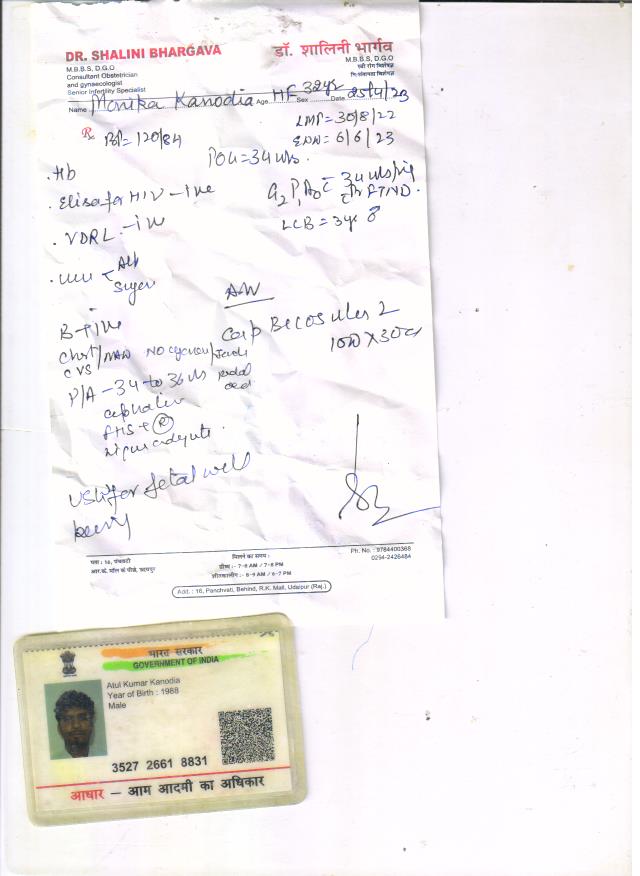 DR. SHALINI BHARGAVA
M.B.B.S, D.G.O
Consultant Obstetrician
and gynaecologist
Senior Infertility Specialist
डॉ. शालिनी भार्गव
M.B.B.S, D.G.O.
स्त्री रोग विशेषज्ञ
निःसंतानता विशेषज्ञ
Name Monika Kanodia Age HF 32yr Sex Date 25/4/23
Rx BP= 120/84
LMP= 30/8/22
EDD= 6/6/23
POG = 34 wks.
. Hb
. Elisa for HIV - ive
G2 P1 A0 c 34 wks
FTND.
. VDRL. - ive
LCB = 3yr ♂
Alb
Sugar
Adv
B + ive
Cap Becosules 2
100 x 30
Chest/ NAD NO
CVS
P/A - 34 to 36 wks
cephalic
FHS +
USG for fetal well
being
पता : 16, पंचवटी
आर.के. मॉल के पीछे, उदयपुर
मिलने का समय :
ग्रीष्म :- 7-8 AM / 7-8 PM
शीतकालीन :- 8-9 AM / 6-7 PM
Ph. No. : 9784400368
0294-2426484
Add. : 16, Panchvati, Behind, R.K. Mall, Udaipur (Raj.)
भारत सरकार
GOVERNMENT OF INDIA
Atul Kumar Kanodia
Year of Birth : 1988
Male
3527 2661 8831
आधार – आम आदमी का अधिकार